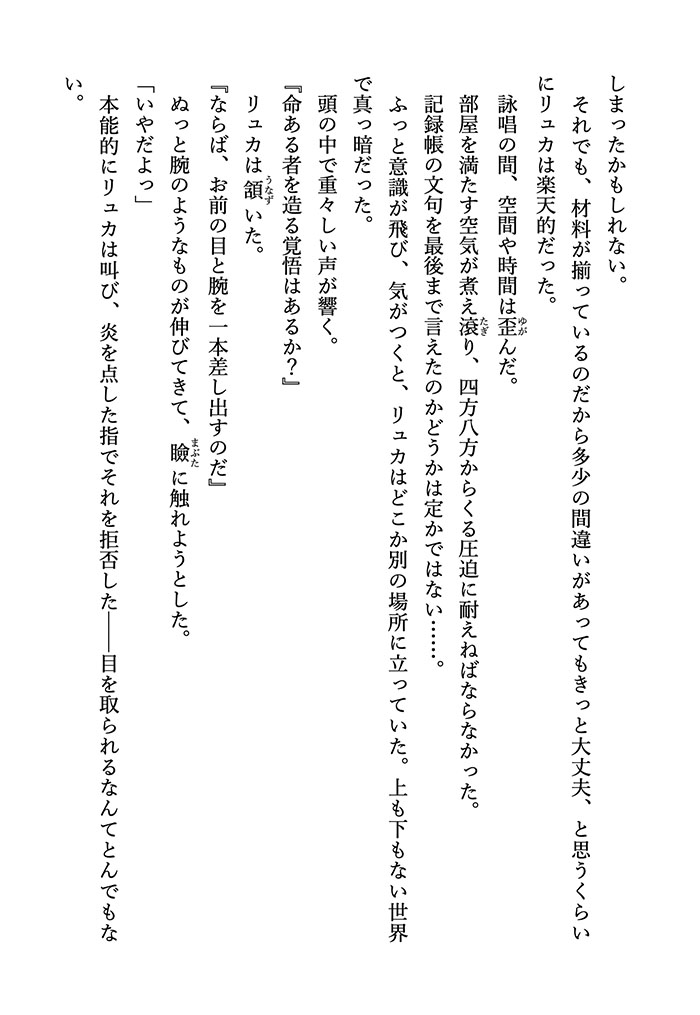 しまったかもしれない。
　それでも、材料が揃っているのだから多少の間違いがあってもきっと大丈夫、と思うくらい
にリュカは楽天的だった。
　詠唱の間、空間や時間は歪んだ。
　部屋を満たす空気が煮え滾り、四方八方からくる圧迫に耐えねばならなかった。
　記録帳の文句を最後まで言えたのかどうかは定かではない……。
　ふっと意識が飛び、気がつくと、リュカはどこか別の場所に立っていた。上も下もない世界
で真っ暗だった。
　頭の中で重々しい声が響く。
『命ある者を造る覚悟はあるか？』
　リュカは頷いた。
『ならば、お前の目と腕を一本差し出すのだ』
　ぬっと腕のようなものが伸びてきて、瞼に触れようとした。
「いやだよっ」
　本能的にリュカは叫び、炎を点した指でそれを拒否した――目を取られるなんてとんでもな
い。